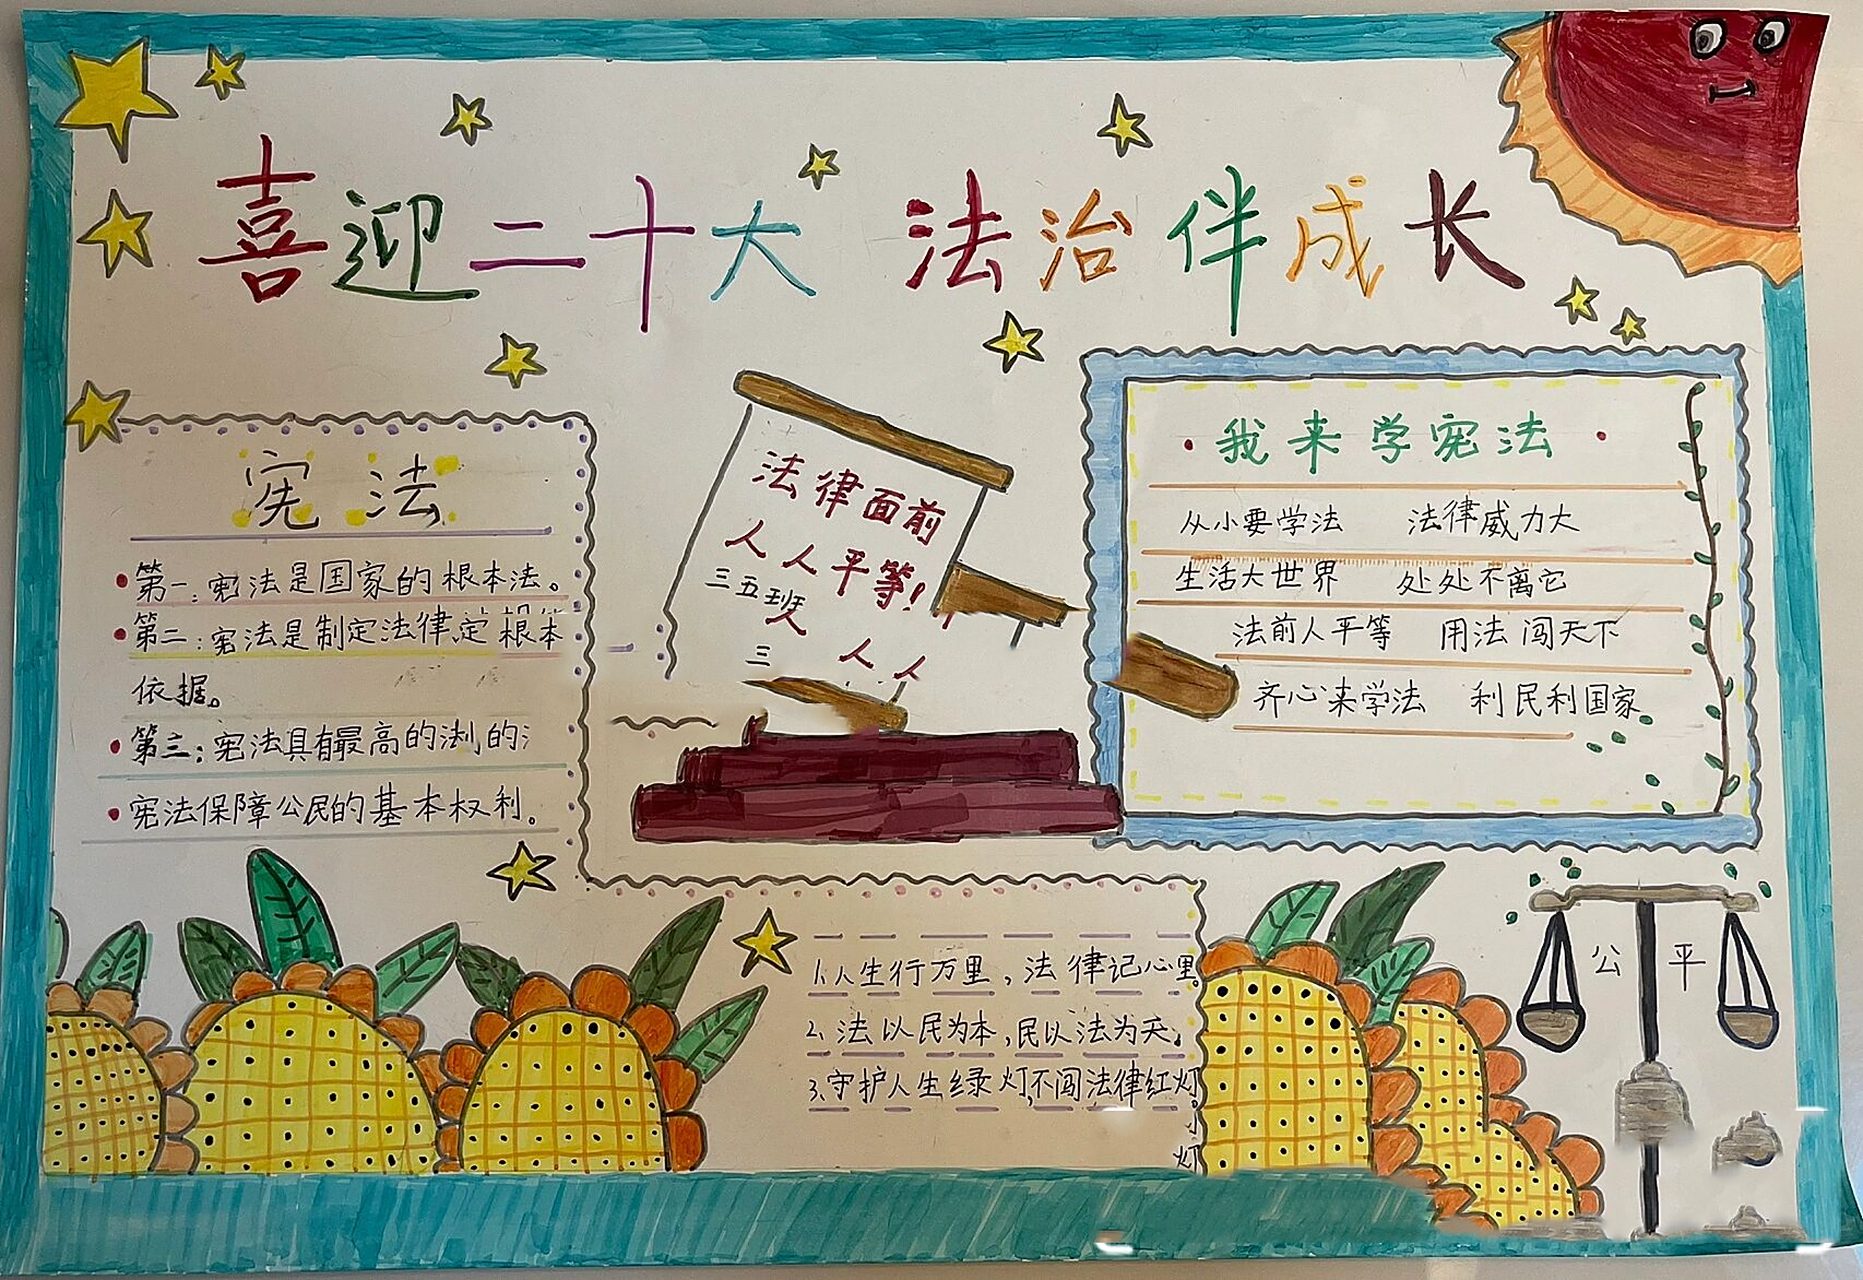 喜迎二十大 法治伴成长
宪法
第一:宪法是国家的根本法。
第二:宪法是制定法律定根本
依据。
第三:宪法具有最高的法的
宪法保障公民的基本权利。
法律面前
人人平等!
三五班
三 人人
·我来学宪法·
从小要学法 法律威力大
生活大世界 处处不离它
法前人平等 用法闯天下
齐心来学法 利民利国家
1.人生行万里,法律记心里。
2.法以民为本,民以法为天。
3.守护人生绿灯,不闯法律红灯。
灯
公平